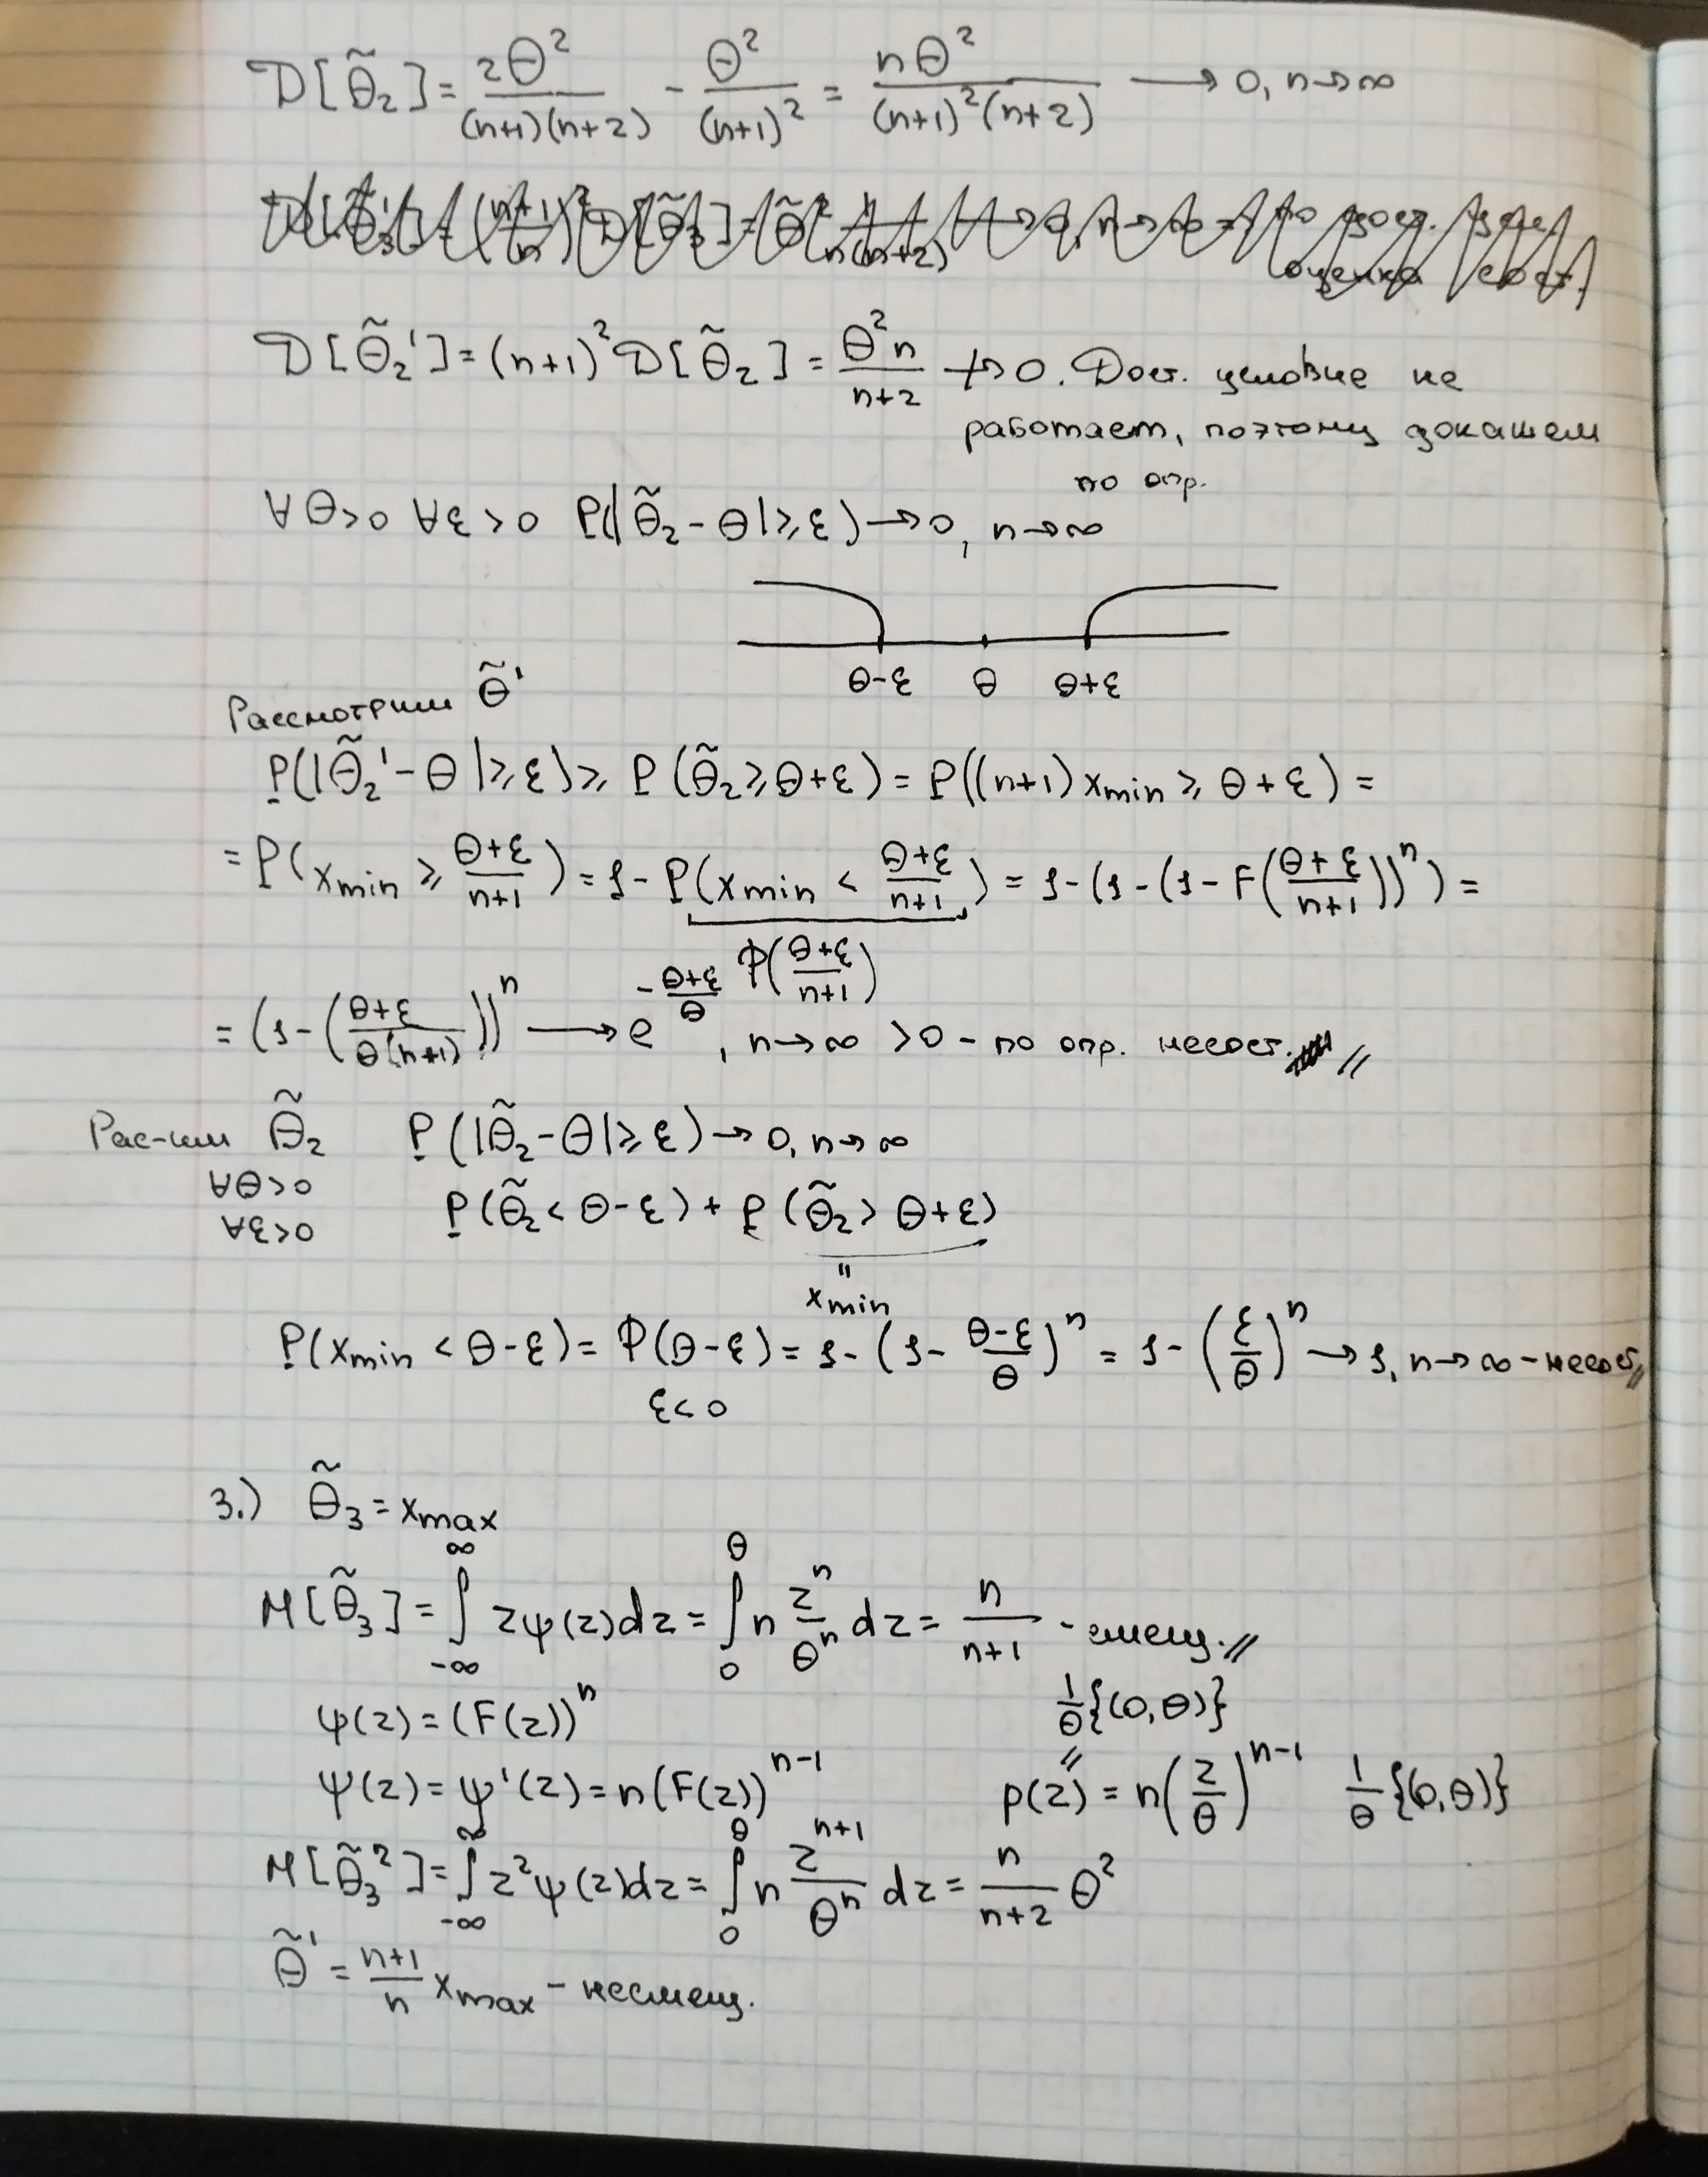 D[θ̃₂] = 2θ²/((n+1)(n+2)) - θ²/(n+1)² = nθ²/((n+1)²(n+2)) → 0, n→∞
D[θ̃₂'] = (n+1)² D[θ̃₂] = θ²n/(n+2) ↛ 0. Дост. условие не
работает, поэтому докажем
по опр.
∀θ>0 ∀ε>0 P(|θ̃₂ - θ|⩾ε) → 0, n→∞
θ-ε θ θ+ε
Рассмотрим θ̃'
P(|θ̃₂' - θ|⩾ε) ⩾ P(θ̃₂ ⩾ θ+ε) = P((n+1) x_min ⩾ θ+ε) =
= P(x_min ⩾ (θ+ε)/(n+1)) = 1 - P(x_min < (θ+ε)/(n+1)) = 1 - (1 - (1 - F((θ+ε)/(n+1)))ⁿ) =
Φ((θ+ε)/(n+1))
= (1 - ((θ+ε)/(θ(n+1))))ⁿ → e^(-(θ+ε)/θ), n→∞ >0 - по опр. несост. //
Рас-им θ̃₂ P(|θ̃₂ - θ|⩾ε) → 0, n→∞
∀θ>0
∀ε>0 P(θ̃₂ < θ-ε) + P(θ̃₂ > θ+ε)
"
x_min
P(x_min < θ-ε) = Φ(θ-ε) = 1 - (1 - (θ-ε)/θ)ⁿ = 1 - (ε/θ)ⁿ → 1, n→∞ - несост. //
ε<0
3.) θ̃₃ = x_max
M[θ̃₃] = ∫_{-∞}^{∞} zψ(z)dz = ∫_0^θ n zⁿ/θⁿ dz = n/(n+1) - смещ. //
ψ(z) = (F(z))ⁿ
1/θ{(0,θ)}
"
ψ(z) = ψ'(z) = n(F(z))ⁿ⁻¹ p(z) = n(z/θ)ⁿ⁻¹ 1/θ{(0,θ)}
M[θ̃₃²] = ∫_{-∞}^{∞} z²ψ(z)dz = ∫_0^θ n zⁿ⁺¹/θⁿ dz = n/(n+2) θ²
θ̃' = (n+1)/n x_max - несмещ.